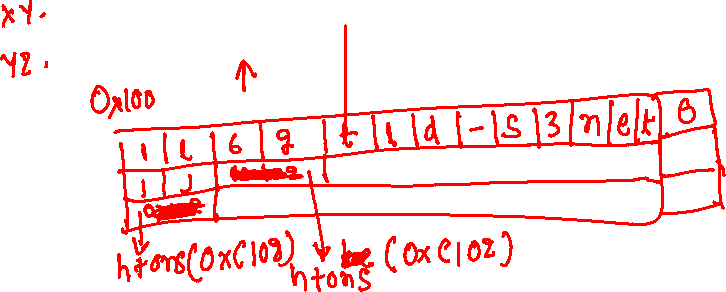 XY.
YZ.
0x100
1 l 6 g t l d - s 3 n e t 0
1 J
htons(0xC102) htons (0xC102)